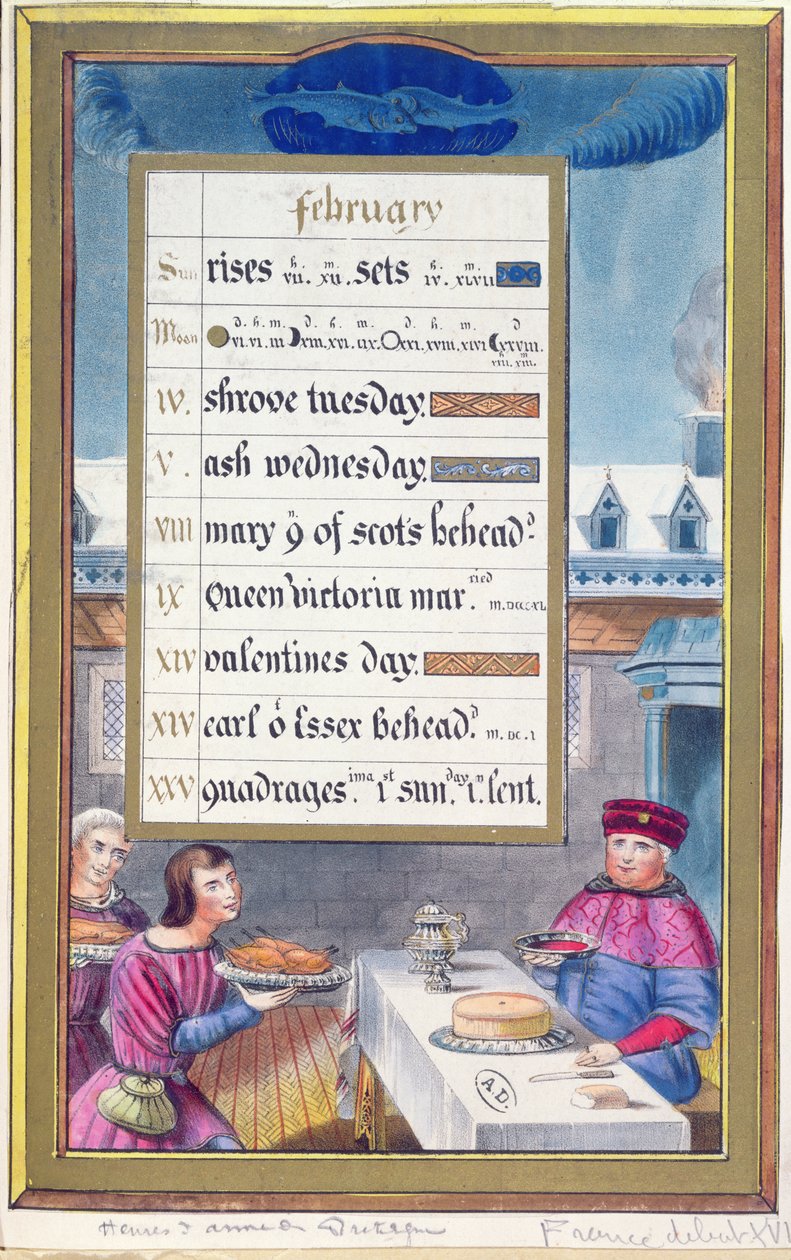 february
Sun rises vii. xii. sets iv. xlvii
h. m. h. m.
Moon
d. h. m. d. h. m. d. h. m. d
vi. vi. iii xiii. xvi. ix. xxi. xviii. xlvi xxviii.
h m
viii. xiii.
iv. shrove tuesday.
v. ash wednesday.
viii mary q.n of scots behead.d
ix Queen victoria mar.ried m.dcccxl
xiv valentines day.
xiv earl o.f Essex behead.d m.dc.i
xxv quadrages.ima 1.st sun.day i.n lent.
A.D.
Heures d'anne de Bretagne
France debut XVI